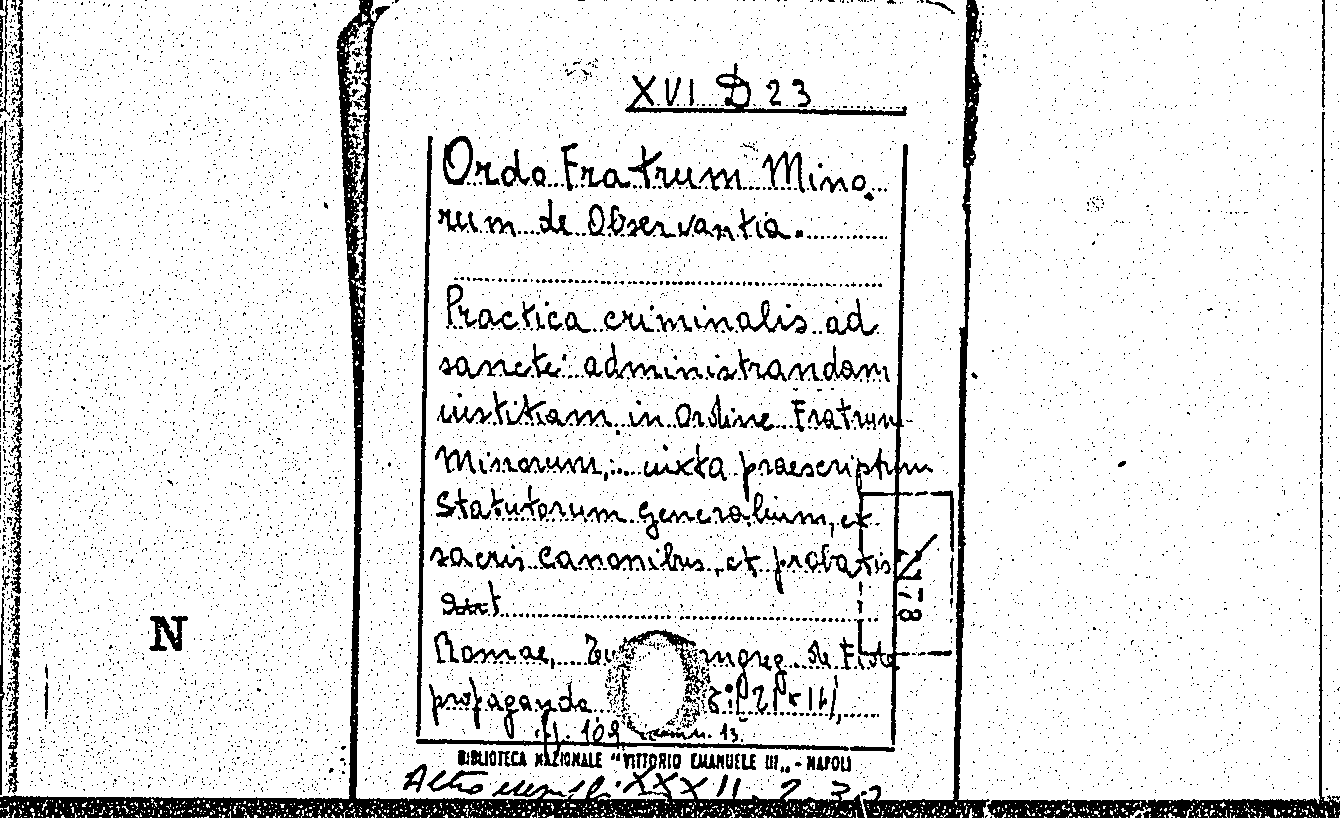 XVI D 23
Ordo Fratrum Mino
rum de Observantia.
Practica criminalis ad
sancte administrandam
iustitiam in Ordine Fratrum
Minorum, iuxta praescriptum
Statutorum generalium, et
sacris Canonibus, et probatis
Romae, ongreg. de Fide
propaganda
ff. 109 13.
BIBLIOTECA NAZIONALE "VITTORIO EMANUELE III" - NAPOLI
XXXII. 2. 32
N